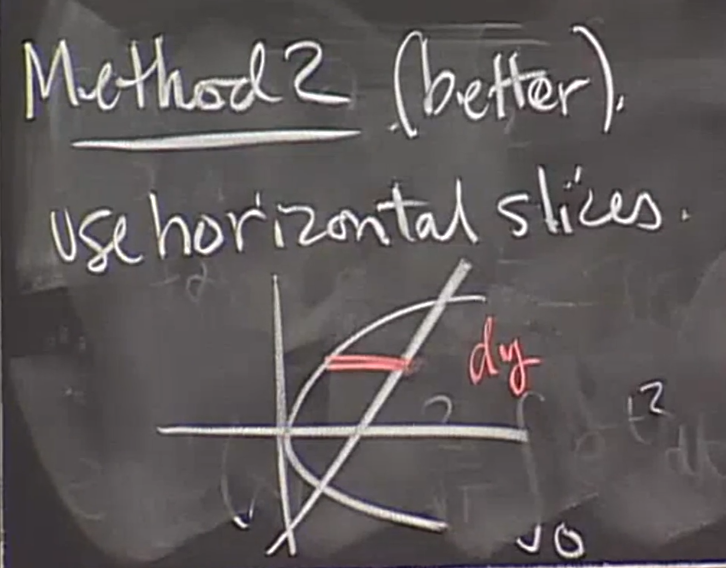 Method 2 (better).
use horizontal slices.
dy